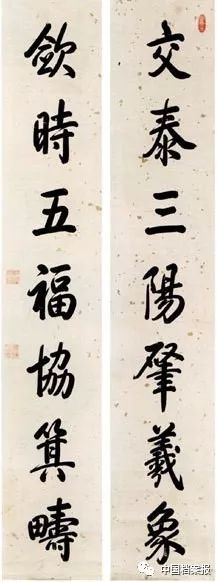 交泰三陽肇羲象
歛時五福協箕疇
中国档案报